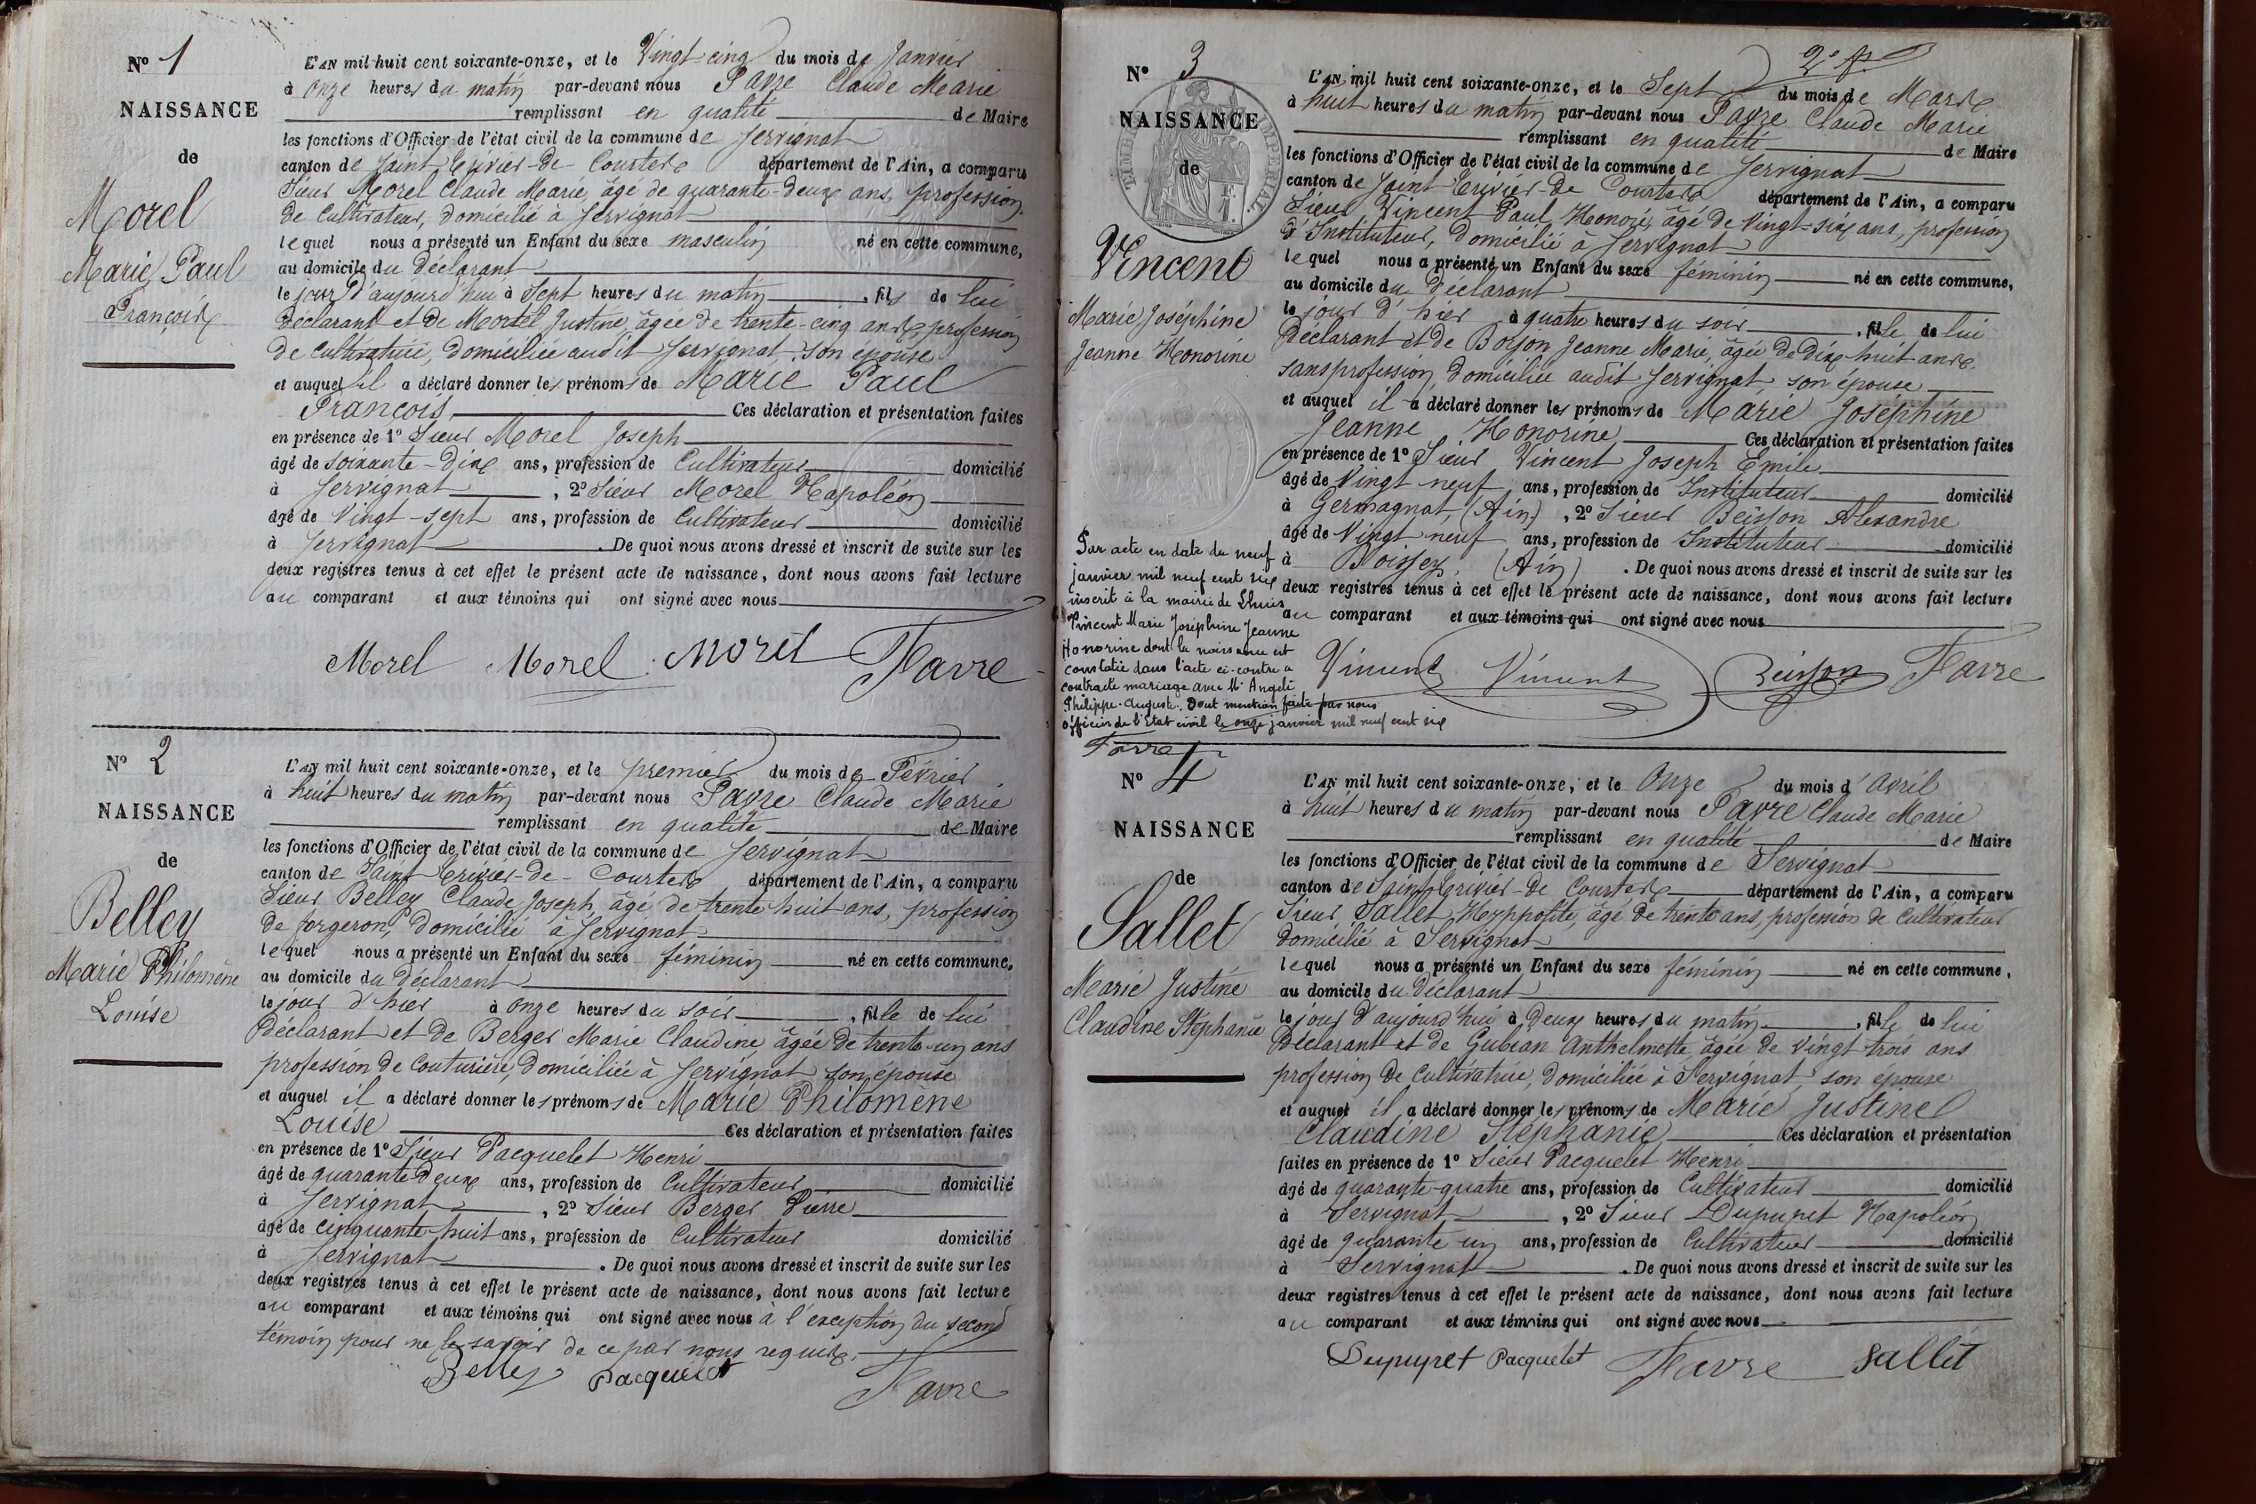 N° 1
NAISSANCE
de
Morel
Marie Paul
François
L'AN mil huit cent soixante-onze, et le Vingt-cinq du mois de Janvier
à onze heures du matin par-devant nous Favre Claude Marie
remplissant en qualité de Maire
les fonctions d'Officier de l'état civil de la commune de Servignat
canton de Saint Trivier-de-Courtes département de l'Ain, a comparu
Sieur Morel Claude Marie, âgé de quarante-deux ans, profession
de Cultivateur, domicilié à Servignat
lequel nous a présenté un Enfant du sexe masculin né en cette commune,
au domicile du Déclarant
le jour d'aujourd'hui à Sept heures du matin, fils de lui
Déclarant et de Morel Justine, âgée de trente-cinq ans, profession
de Cultivatrice, domiciliée audit Servignat, son épouse
et auquel il a déclaré donner les prénoms de Marie Paul
François Ces déclaration et présentation faites
en présence de 1° Sieur Morel Joseph
âgé de soixante-dix ans, profession de Cultivateur domicilié
à Servignat, 2° Sieur Morel Napoléon
âgé de Vingt-sept ans, profession de Cultivateur domicilié
à Servignat. De quoi nous avons dressé et inscrit de suite sur les
deux registres tenus à cet effet le présent acte de naissance, dont nous avons fait lecture
au comparant et aux témoins qui ont signé avec nous
Morel Morel Morel Favre
N° 2
NAISSANCE
de
Belley
Marie Philomène
Louise
L'AN mil huit cent soixante-onze, et le premier du mois de Février
à huit heures du matin par-devant nous Favre Claude Marie
remplissant en qualité de Maire
les fonctions d'Officier de l'état civil de la commune de Servignat
canton de Saint Trivier-de-Courtes département de l'Ain, a comparu
Sieur Belley Claude Joseph, âgé de trente huit ans, profession
de forgeron, domicilié à Servignat
lequel nous a présenté un Enfant du sexe féminin né en cette commune,
au domicile du Déclarant
le jour d'hier à onze heures du soir, fille de lui
Déclarant et de Berger Marie Claudine âgée de trente-un ans
profession de Couturière, domiciliée à Servignat son épouse
et auquel il a déclaré donner les prénoms de Marie Philomène
Louise Ces déclaration et présentation faites
en présence de 1° Sieur Pacquelet Henri
âgé de quarante deux ans, profession de Cultivateur domicilié
à Servignat, 2° Sieur Berger Pierre
âgé de cinquante-huit ans, profession de Cultivateur domicilié
à Servignat. De quoi nous avons dressé et inscrit de suite sur les
deux registres tenus à cet effet le présent acte de naissance, dont nous avons fait lecture
au comparant et aux témoins qui ont signé avec nous à l'exception du second
témoin pour ne le savoir de ce par nous requis.
Belley Pacquelet
Favre
2e f.
N° 3
NAISSANCE
de
TIMBRE IMPERIAL
Vincent
Marie Joséphine
Jeanne Honorine
L'AN mil huit cent soixante-onze, et le Sept du mois de Mars
à huit heures du matin par-devant nous Favre Claude Marie
remplissant en qualité de Maire
les fonctions d'Officier de l'état civil de la commune de Servignat
canton de Saint Trivier-de Courtes département de l'Ain, a comparu
Sieur Vincent Paul, Honoré, âgé de Vingt-six ans, profession
d'Instituteur, domicilié à Servignat
lequel nous a présenté un Enfant du sexe féminin né en cette commune,
au domicile du Déclarant
le jour d'hier à quatre heures du soir, fille de lui
Déclarant et de Boyon Jeanne Marie, âgée de dix huit ans
sans profession, domiciliée audit Servignat son épouse
et auquel il a déclaré donner les prénoms de Marie Joséphine
Jeanne Honorine Ces déclaration et présentation faites
en présence de 1° Sieur Vincent Joseph Emile
âgé de Vingt neuf ans, profession de Instituteur domicilié
à Germagnat (Ain), 2° Sieur Beisson Alexandre
âgé de Vingt neuf ans, profession de Instituteur domicilié
à Boissey, (Ain). De quoi nous avons dressé et inscrit de suite sur les
deux registres tenus à cet effet le présent acte de naissance, dont nous avons fait lecture
au comparant et aux témoins qui ont signé avec nous
Vincent Vincent Beisson Favre
Par acte en date du neuf
janvier mil neuf cent six
inscrit à la mairie de Lhuis
Vincent Marie Joséphine Jeanne
Honorine dont la naissance est
constatée dans l'acte ci-contre a
contracté mariage avec Mr Angeli
Philippe-Auguste. Dont mention faite par nous
officier de l'Etat civil le onze janvier mil neuf cent six
Favre
N° 4
NAISSANCE
de
Sallet
Marie Justine
Claudine Stéphanie
L'AN mil huit cent soixante-onze, et le Onze du mois d'avril
à huit heures du matin par-devant nous Favre Claude Marie
remplissant en qualité de Maire
les fonctions d'Officier de l'état civil de la commune de Servignat
canton de Saint Trivier-de Courtes département de l'Ain, a comparu
Sieur Sallet Hyppolite, âgé de trente ans, profession de Cultivateur
domicilié à Servignat
lequel nous a présenté un Enfant du sexe féminin né en cette commune,
au domicile du Déclarant
le jour d'aujourd'hui à Deux heures du matin, fille de lui
Déclarant et de Gubian Anthelmette, âgée de Vingt trois ans
profession de Cultivatrice, domiciliée à Servignat, son épouse
et auquel il a déclaré donner les prénoms de Marie Justine
Claudine Stéphanie Ces déclaration et présentation
faites en présence de 1° Sieur Pacquelet Henri
âgé de quarante-quatre ans, profession de Cultivateur domicilié
à Servignat, 2° Sieur Dupupet Napoléon
âgé de quarante un ans, profession de Cultivateur domicilié
à Servignat. De quoi nous avons dressé et inscrit de suite sur les
deux registres tenus à cet effet le présent acte de naissance, dont nous avons fait lecture
au comparant et aux témoins qui ont signé avec nous
Dupupet Pacquelet Favre Sallet